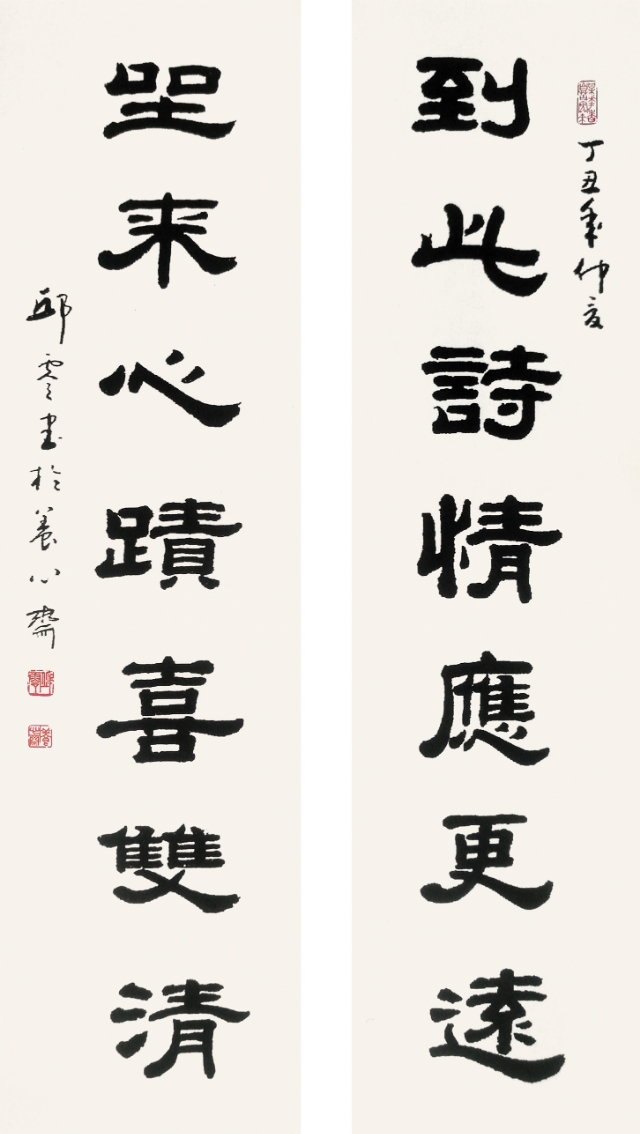 丁丑年仲夏
到此詩情應更遠
坐來心蹟喜雙清
邱零書於養心齋